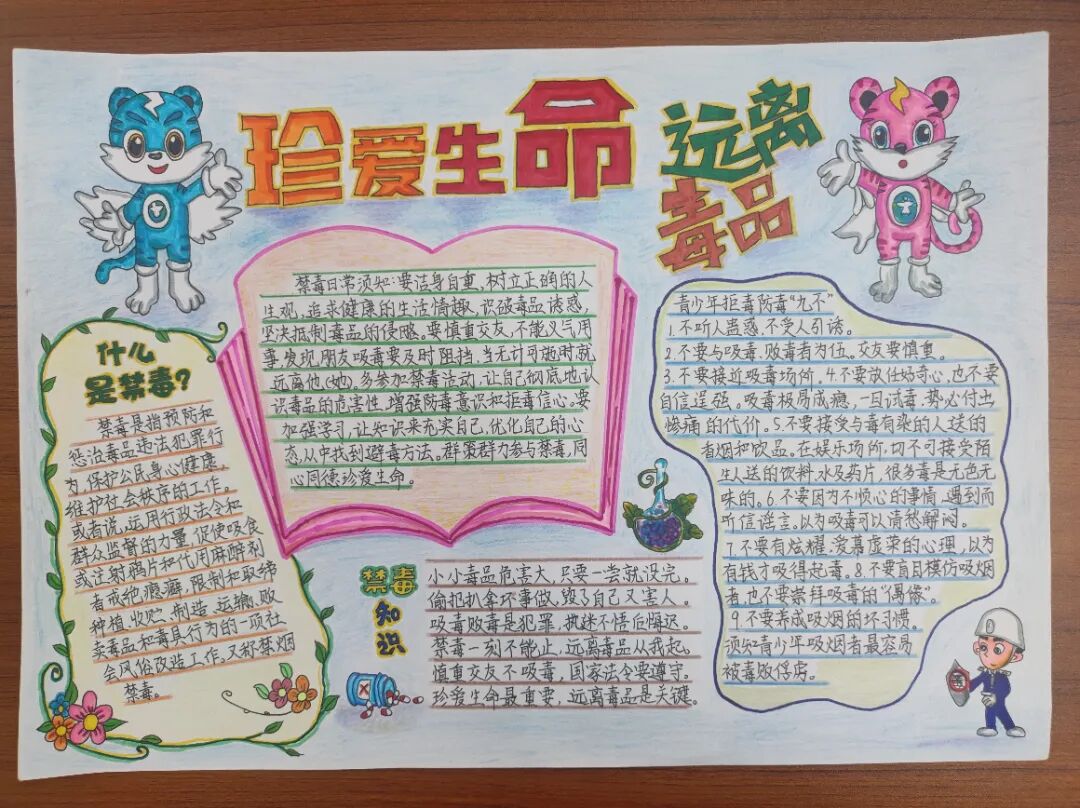 珍爱生命
远离
毒品
什么
是禁毒?
禁毒是指预防和
惩治毒品违法犯罪行
为,保护公民身心健康,
维护社会秩序的工作。
或者说,运用行政法令和
群众监督的力量,促使吸食
或注射鸦片和代用麻醉剂
者戒绝瘾癖,限制和取缔
种植、收贮、制造、运输、贩
卖毒品和毒具行为的一项社
会风俗改造工作。又称禁烟
禁毒。
禁毒日常须知:要洁身自重,树立正确的人
生观,追求健康的生活情趣,识破毒品诱惑,
坚决抵制毒品的侵略。要慎重交友,不能义气用
事,发现朋友吸毒要及时阻挡,当无计可施时,就
远离他(她),多参加禁毒活动,让自己彻底地认
识毒品的危害性,增强防毒意识和拒毒信心。要
加强学习,让知识来充实自己,优化自己的心
态,从中找到避毒方法。群策群力参与禁毒,同
心同德珍爱生命。
禁毒
知
识
小小毒品危害大,只要一尝就没完。
偷抢扒拿坏事做,毁了自己又害人。
吸毒贩毒是犯罪,执迷不悟后悔迟。
禁毒一刻不能止,远离毒品从我起。
慎重交友不吸毒,国家法令要遵守。
珍爱生命最重要,远离毒品是关键。
青少年拒毒防毒“九不”
1.不听人蛊惑,不受人引诱。
2.不要与吸毒、贩毒者为伍。交友要慎重。
3.不要接近吸毒场所 4.不要放任好奇心,也不要
自信逞强。吸毒极易成瘾,一旦试毒,势必付出
惨痛的代价。5.不要接受与毒有染的人送的
香烟和饮品。在娱乐场所,切不可接受陌
生人送的饮料、水及药片,很多毒是无色无
味的。6.不要因为不顺心的事情,遇到而
听信谣言。以为吸毒可以消愁解闷。
7.不要有炫耀、爱慕虚荣的心理,以为
有钱才吸得起毒。8.不要盲目模仿吸烟
者,也不要崇拜吸毒的“偶像”。
9.不要养成吸烟的坏习惯。
须知青少年吸烟者最容易
被毒贩俘虏。